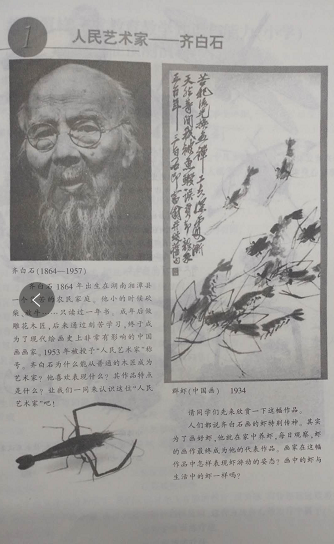 1
人民艺术家——齐白石
齐白石(1864—1957)
齐白石 1864 年出生在湖南湘潭县
一个
的农民家庭。他小的时候砍
柴、
只读过一年书。成年后做
雕花木匠,后来通过刻苦学习,终于成
为了现代绘画史上非常有影响的中国
画画家。1953 年被授予“人民艺术家”称
号。齐白石为什么能从普通的木匠成为
艺术家?他喜欢表现什么?其作品特点
是什么?让我们一同来认识这位“人民
艺术家”吧!
群虾(中国画) 1934
请同学们先来欣赏一下这幅作品。
人们都说齐白石画的虾特别传神。其实
为了画好虾,他就在家中养虾,每日观察,虾
的画作最终成为他的代表作品。画家在这幅
作品中怎样表现虾游动的姿态?画中的虾与
生活中的虾一样吗?